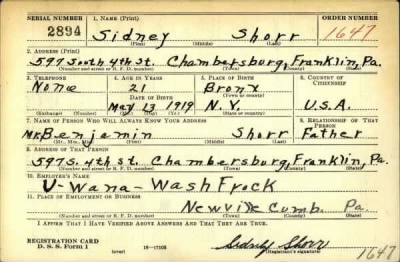 SERIAL NUMBER 1. NAME (Print) ORDER NUMBER
2894 Sidney Shorr 1647
(First) (Middle) (Last)
2. ADDRESS (Print)
597 South 4th St. Chambersburg, Franklin, Pa.
(Number and street or R. F. D. number) (Town) (County) (State)
3. TELEPHONE 4. AGE IN YEARS 5. PLACE OF BIRTH 6. COUNTRY OF CITIZENSHIP
None 21 Bronx
DATE OF BIRTH (Town or county)
May 13 1919 N.Y. U.S.A.
(Exchange) (Number) (Mo.) (Day) (Yr.) (State or country)
7. NAME OF PERSON WHO WILL ALWAYS KNOW YOUR ADDRESS 8. RELATIONSHIP OF THAT PERSON
Mr. Benjamin Shorr Father
(Mr., Mrs., Miss) (First) (Middle) (Last)
9. ADDRESS OF THAT PERSON
597 S. 4th St. Chambersburg, Franklin, Pa.
(Number and street or R. F. D. number) (Town) (County) (State)
10. EMPLOYER'S NAME
U-Wana-Wash Frock
11. PLACE OF EMPLOYMENT OR BUSINESS
Newville Cumb. Pa.
(Number and street or R. F. D. number) (Town) (County) (State)
I AFFIRM THAT I HAVE VERIFIED ABOVE ANSWERS AND THAT THEY ARE TRUE.
REGISTRATION CARD
D. S. S. Form 1 (over) 16—17105 Sidney Shorr
(Registrant's signature)
1647